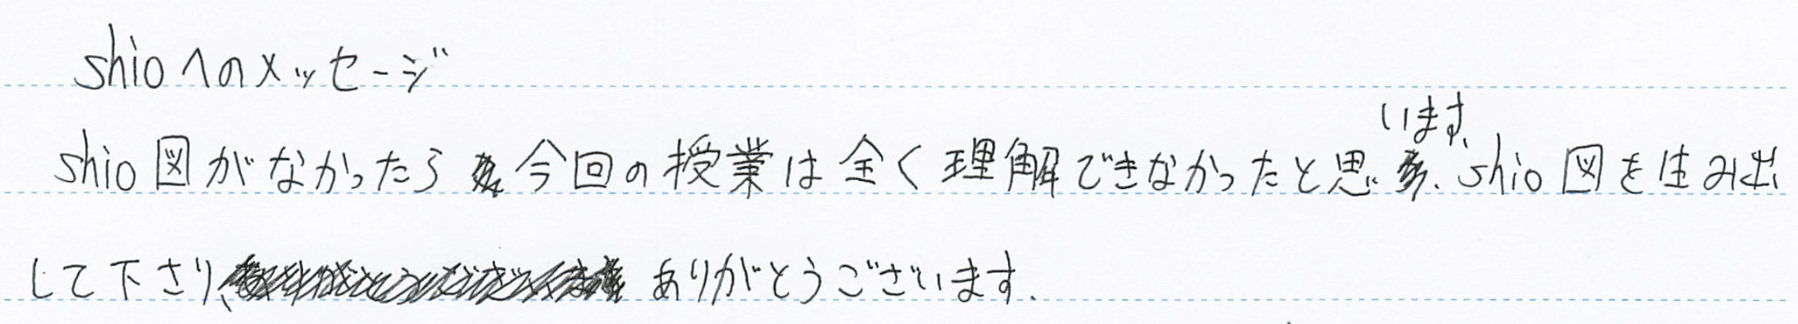 shioへのメッセージ
shio図がなかったら今回の授業は全く理解できなかったと思います。shio図を生み出
して下さり、ありがとうございます.